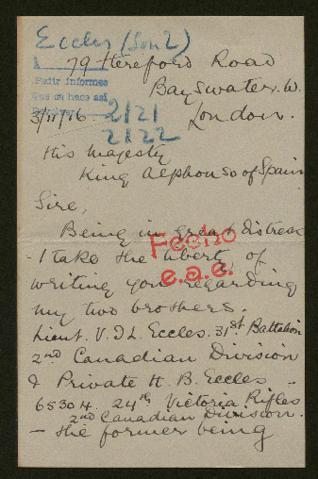 Eccles (Son 2)
79 Hereford Road
Bayswater. W.
London.
Pedir informes
que se hace así
3/11/16
2/21
2/22
His Majesty
King Alphonso of Spain
Sire,
Being in great distress
Fecho
- I take the liberty of
e.a.e.
writing you regarding
my two brothers.
Lieut. V. J. L. Eccles. 31st Battalion
2nd Canadian Division
& Private H. B. Eccles
65304. 24th Victoria Rifles
2nd Canadian Division.
- the former being